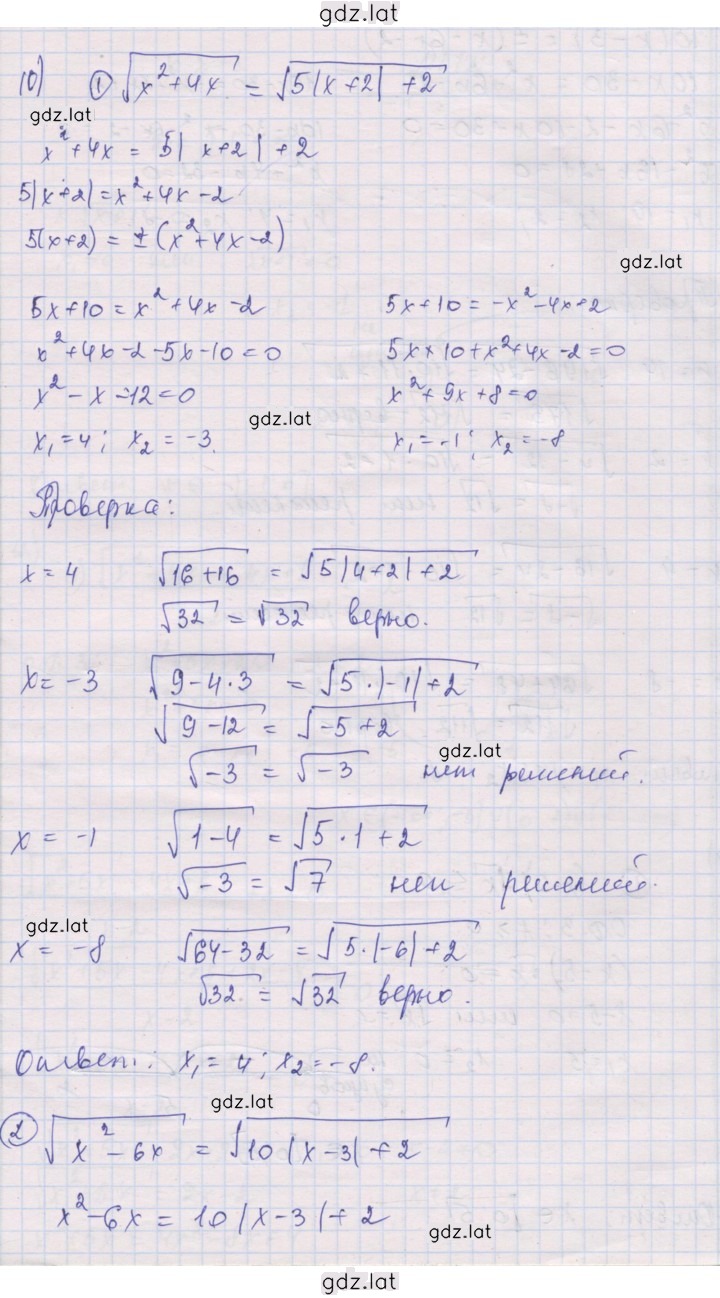 gdz.lat
10) ① √(x²+4x) = √(5|x+2| +2)
gdz.lat
x²+4x = 5|x+2|+2
5|x+2|=x²+4x-2
5(x+2) = ±(x²+4x-2)
gdz.lat
5x+10 = x²+4x-2 5x+10 = -x²-4x+2
x²+4x-2-5x-10=0 5x+10+x²+4x-2=0
x²-x-12=0 x²+9x+8=0
gdz.lat
x₁=4; x₂=-3. x₁=-1; x₂=-8
Проверка:
x=4 √(16+16) = √(5|4+2|+2)
√32 = √32 верно.
x=-3 √(9-4·3) = √(5·|-1|+2)
√(9-12) = √(-5+2)
gdz.lat
√-3 = √-3 нет решений.
x=-1 √(1-4) = √(5·1+2)
√-3 = √7 нет решений.
gdz.lat
x=-8 √(64-32) = √(5·|-6|+2)
√32 = √32 верно.
Ответ: x₁=4; x₂=-8.
gdz.lat
② √(x²-6x) = √(10|x-3|+2)
x²-6x = 10|x-3|+2
gdz.lat
gdz.lat